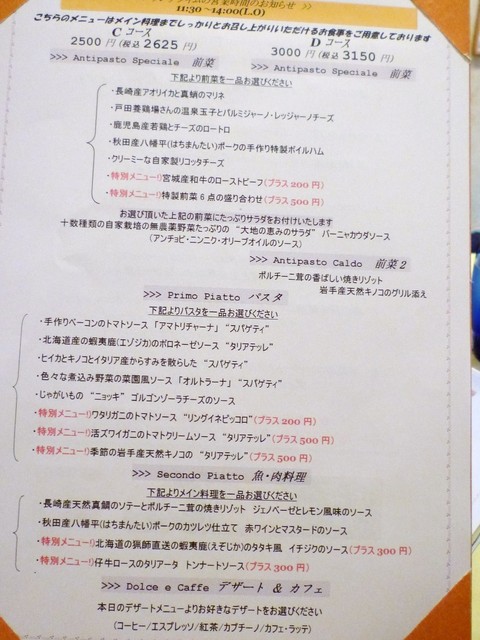 ランチタイムの営業時間のお知らせ >>
11:30～14:00(L.O)
こちらのメニューはメイン料理までしっかりとお召し上がりいただけるお食事をご用意しております
C コース
2500 円 (税込 2625 円)
D コース
3000 円 (税込 3150 円)
>>> Antipasto Speciale 前菜
>>> Antipasto Speciale 前菜
下記より前菜を一品お選びください
・長崎産アオリイカと真鯛のマリネ
・戸田養鶏場さんの温泉玉子とパルミジャーノ・レッジャーノチーズ
・鹿児島産若鶏とチーズのロートロ
・秋田産八幡平(はちまんたい)ポークの手作り特製ボイルハム
・クリーミーな自家製リコッタチーズ
・特別メニュー!)宮城産和牛のローストビーフ(プラス 200 円)
・特別メニュー!)特製前菜 6 点の盛り合わせ(プラス 500 円)
お選び頂いた上記の前菜にたっぷりサラダをお付けいたします
十数種類の自家栽培の無農薬野菜たっぷりの “大地の恵みのサラダ” バーニャカウダソース
(アンチョビ・ニンニク・オリーブオイルのソース)
>>> Antipasto Caldo 前菜 2
ポルチーニ茸の香ばしい焼きリゾット
岩手産天然キノコのグリル添え
>>> Primo Piatto パスタ
下記よりパスタを一品お選びください
・手作りベーコンのトマトソース 「アマトリチャーナ」 “スパゲティ”
・北海道産の蝦夷鹿(エゾジカ)のボロネーゼソース “タリアテッレ”
・ヒイカとキノコとイタリア産からすみを散らした “スパゲティ”
・色々な煮込み野菜の菜園風ソース 「オルトラーナ」 “スパゲティ”
・じゃがいもの “ニョッキ” ゴルゴンゾーラチーズのソース
・特別メニュー!)ワタリガニのトマトソース “リングイネピッコロ”(プラス 200 円)
・特別メニュー!)活ズワイガニのトマトクリームソース “タリアテッレ”(プラス 500 円)
・特別メニュー!)季節の岩手産天然キノコの “タリアテッレ”(プラス 500 円)
>>> Secondo Piatto 魚・肉料理
下記よりメイン料理を一品お選びください
・長崎産天然真鯛のソテーとポルチーニ茸の焼きリゾット ジェノベーゼとレモン風味のソース
・秋田産八幡平(はちまんたい)ポークのカツレツ仕立て 赤ワインとマスタードのソース
・特別メニュー!)北海道の猟師直送の蝦夷鹿(えぞじか)のタタキ風 イチジクのソース(プラス 300 円)
・特別メニュー!)仔牛ロースのタリアータ トンナートソース(プラス 300 円)
>>> Dolce e Caffe デザート & カフェ
本日のデザートメニューよりお好きなデザートをお選びください
(コーヒー/エスプレッソ/紅茶/カプチーノ/カフェ・ラッテ)